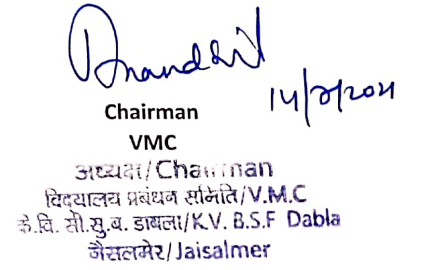 Chairman
VMC
अध्यक्ष/Chairman
विद्यालय प्रबंधन समिति/V.M.C
के.वि. सी.सु.ब. डाबला/K.V. B.S.F Dabla
जैसलमेर/Jaisalmer